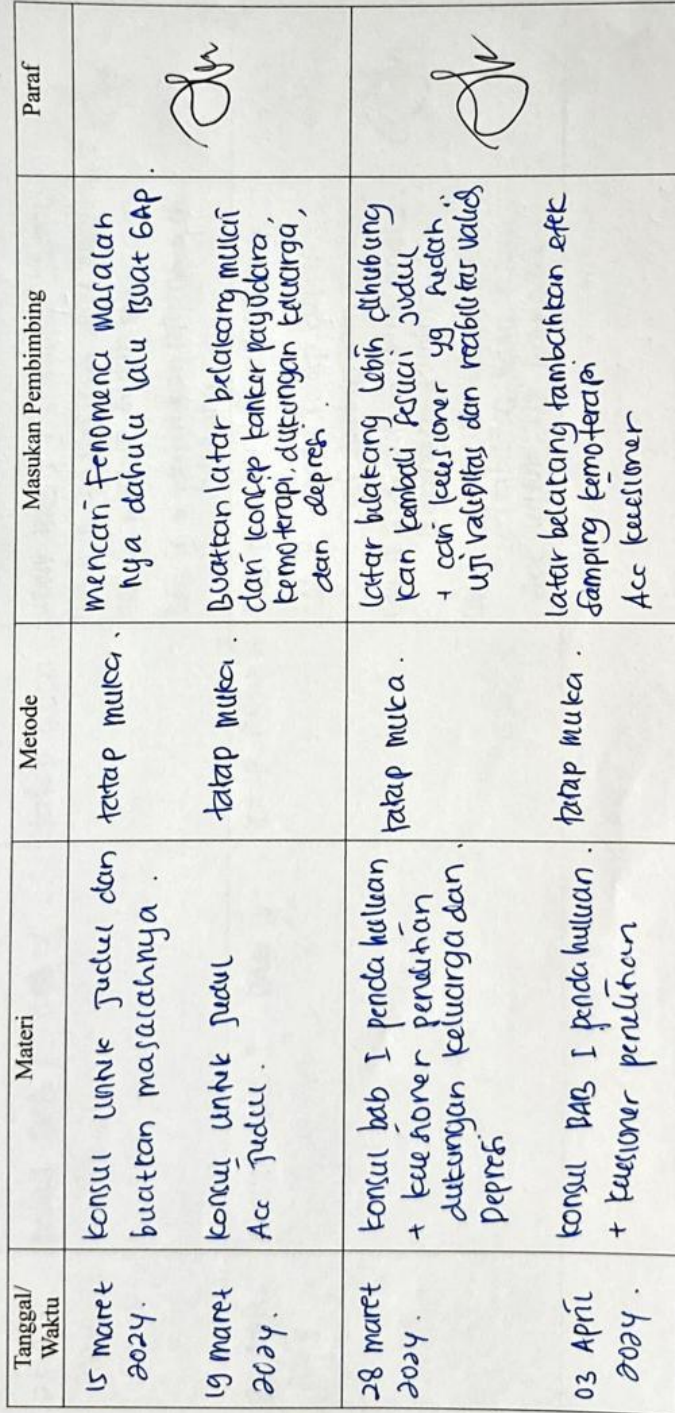 Tanggal/
Waktu
Materi
Metode
Masukan Pembimbing
Paraf
15 maret
2024.
konsul untuk judul dan
buatkan masalahnya.
tatap muka.
mencari fenomena masalah
nya dahulu lalu buat GAP.
19 maret
2024.
konsul untuk judul
Acc judul.
tatap muka.
Buatkan latar belakang mulai
dari konsep kanker payudara,
kemoterapi, dukungan keluarga,
dan depresi.
28 maret
2024.
konsul bab I pendahuluan
+ kuesioner penelitian
dukungan keluarga dan
Depresi
tatap muka.
latar belakang lebih dihubung
kan kembali sesuai judul
+ cari kuesioner yg sudah
uji validitas dan reabilitas valid
03 April
2024.
konsul BAB I pendahuluan.
+ kuesioner penelitian
tatap muka.
latar belakang tambahkan efek
samping kemoterapi
Acc kuesioner